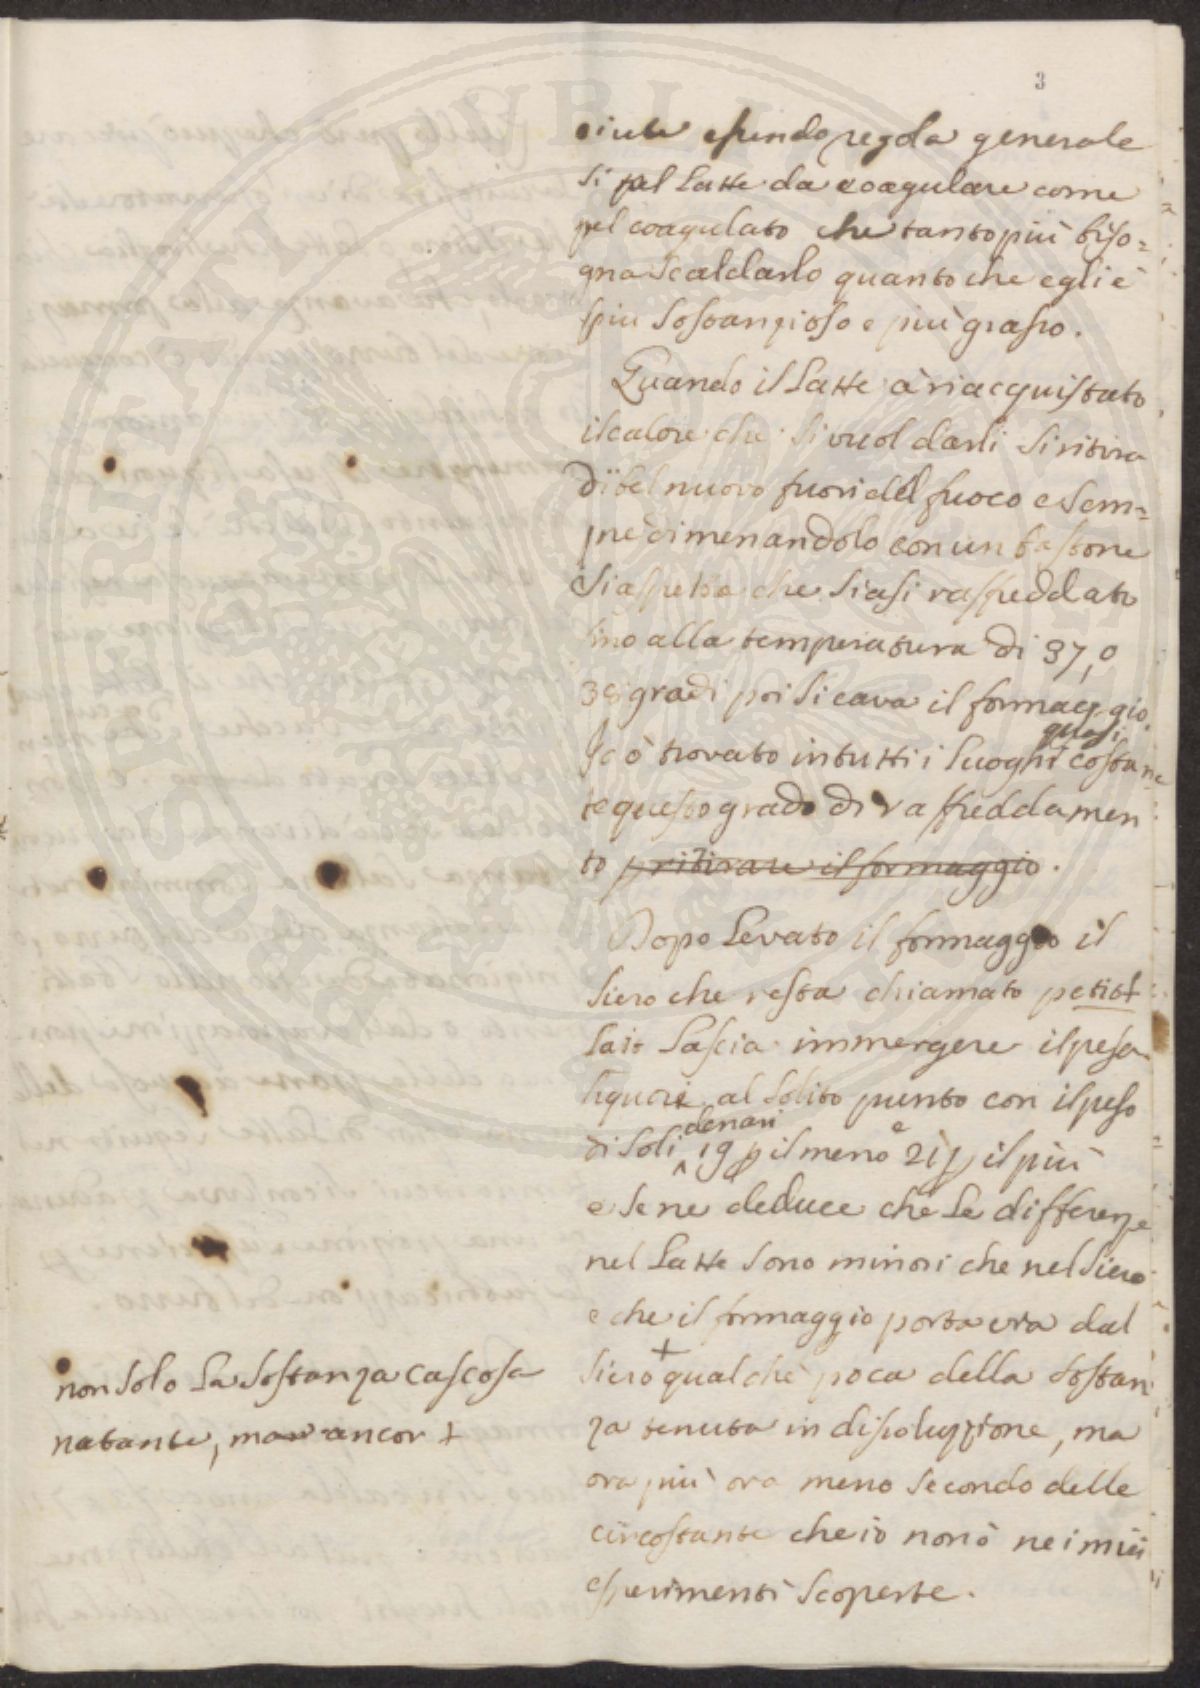 3
essendo regola generale
si pel Latte da coagulare come
pel coagulato che tanto più biso=
gna scaldarlo quanto che egli è
più sostanzioso e più grasso.
Quando il Latte à riacquistato
il calore che si vuol darli si ritira
di bel nuovo fuori del fuoco e sem=
pre dimenandolo con un bastone
si aspetta che siasi raffreddato
sino alla temperatura di 37, o
38 gradi poi si cava il formaggio.
Io ò trovato in tutti i Luoghi quasi costan
te questo grado di raffreddamen
to p ritirare il formaggio.
Dopo Levato il formaggio il
siero che resta chiamato petit
Lait Lascia immergere il pesa
liquori al solito punto con il peso
di soli denari 19 p il meno e 21 p il più
e se ne deduce che Le differenze
nel Latte sono minori che nel siero
e che il formaggio porta via dal
siero + qualche poca della sostan
za tenuta in dissoluzione, ma
ora più ora meno secondo delle
circostante che io non ò nei miei
esperimenti scoperte.
non solo La sostanza cascosa
natante, ma ancor +